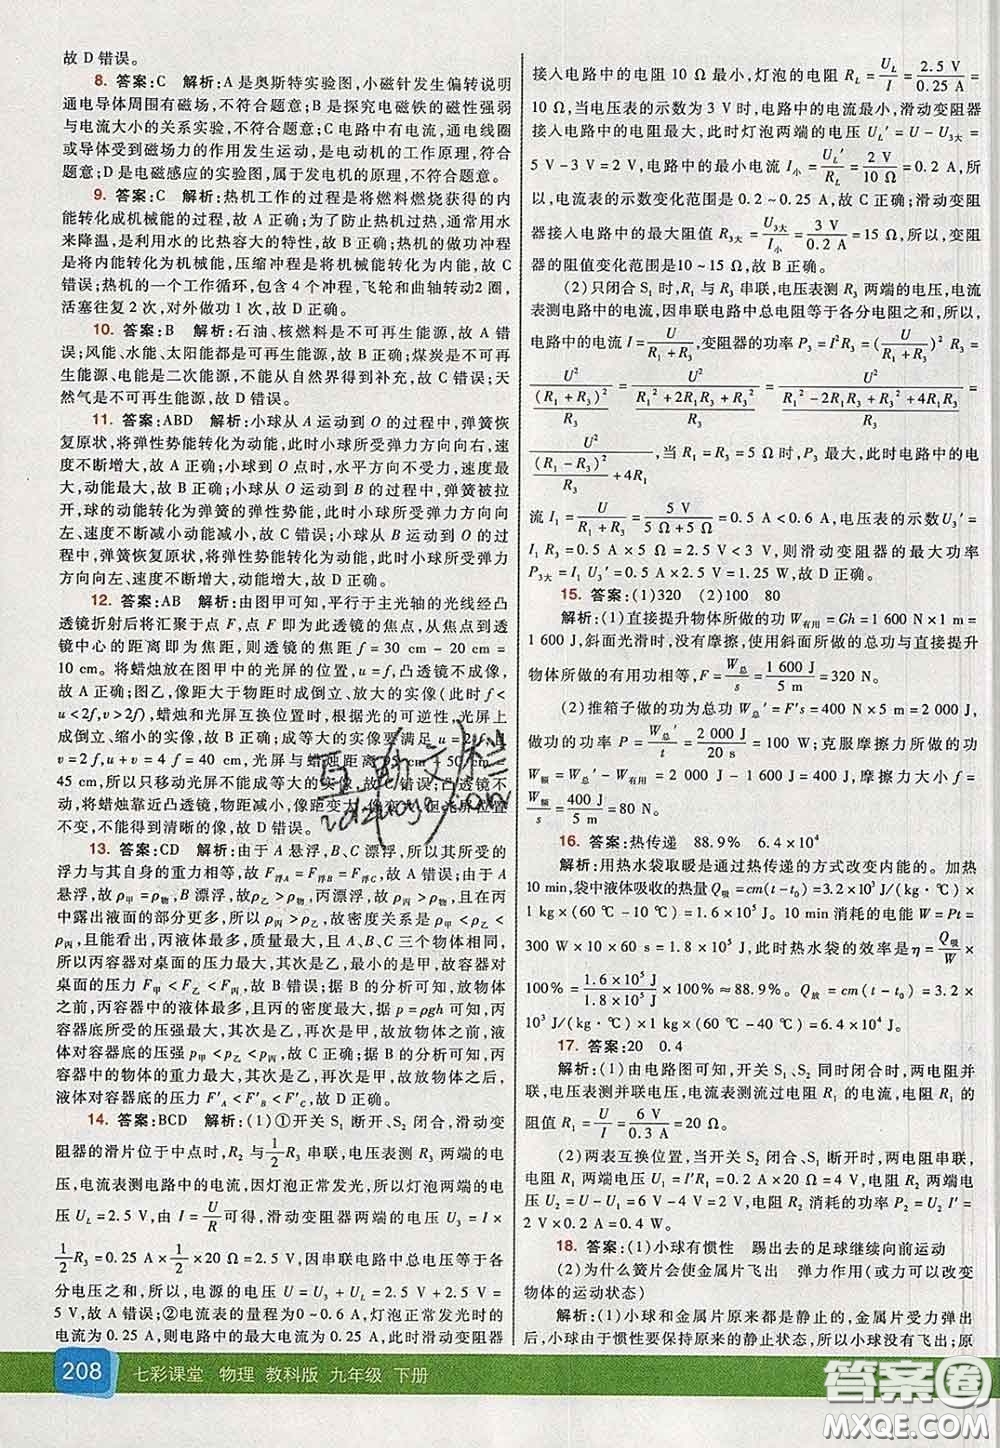 故 D 错误。
8. 答案:C 解析:A 是奥斯特实验图,小磁针发生偏转说明
通电导体周围有磁场,不符合题意;B 是探究电磁铁的磁性强弱
与电流大小的关系实验,不符合题意;C 电路中有电流,通电线圈
或导体受到磁场力的作用发生运动,是电动机的工作原理,符合
题意;D 是电磁感应的实验图,属于发电机的原理,不符合题意。
9. 答案:C 解析:热机工作的过程是将燃料燃烧获得的内
能转化成机械能的过程,故 A 正确;为了防止热机过热,通常用水
来降温,是利用水的比热容大的特性,故 B 正确;热机的做功冲程
是将内能转化为机械能,压缩冲程是将机械能转化为内能,故 C
错误;热机的一个工作循环,包含 4 个冲程,飞轮和曲轴转动2 圈,
活塞往复 2 次,对外做功 1 次,故 D 正确。
10. 答案:B 解析:石油、核燃料是不可再生能源,故 A 错
误;风能、水能、太阳能都是可再生能源,故 B 正确;煤炭是不可再
生能源、电能是二次能源,不能从自然界得到补充,故 C 错误;天
然气是不可再生能源,故 D 错误。
11. 答案:ABD 解析:小球从 A 运动到 O 的过程中,弹簧恢
复原状,将弹性势能转化为动能,此时小球所受弹力方向向右,速
度不断增大,故 A 正确;小球到 O 点时,水平方向不受力,速度最
大,动能最大,故 B 正确;小球从 O 到 B 的过程中,弹簧被拉
开,球的动能转化为弹簧的弹性势能,此时小球所受弹力方向向
左、速度不断减小动能减小,故 C 错误;小球从 B 运动到 O 的过
程中,弹簧恢复原状,将弹性势能转化为动能,此时小球所受弹力
方向向左、速度不断增大,动能增大,故 D 正确。
12. 答案:AB 解析:由图甲可知,平行于主光轴的光线经凸
透镜折射后将汇聚于点 F,点 F 即为此透镜的焦点,此时光屏与
透镜的距离即为焦距,则透镜的焦距 f = 30 cm - 20 cm =
10 cm。将蜡烛放在图甲中的光屏的位置,凸透镜不成像,故 A
正确;图乙,像距大于物距时成倒立、放大的实像(此时 f <
u <2f,v >2f),蜡烛和光屏互换位置时,根据光的可逆性,光屏上
成倒立、缩小的实像,故 B 正确;成等大的实像要满足 u = 2f 且
v = 2f,u + v = 4f = 40 cm,而图乙中 95 cm - 50 cm =
45 cm,所以只移动光屏不能成等大的实像,故 C 错误;凸透镜不动,
将蜡烛靠近凸透镜,物距变小,像距变大,像变大,但光屏位置
不变,不能得到清晰的像,故 D 错误。
13. 答案:CD 解析:由于 A 悬浮,B、C 漂浮,所以其所受的
浮力与其自身的重力相等,故 F浮A = F浮B = F浮C,故 A 错误;由于甲
悬浮,所以 ρ甲 = ρ物,由于乙漂浮,故 ρ乙 > ρ物,丙漂浮,且在丙
中露出液面的部分更多,所以 ρ丙 > ρ乙,故密度关系是 ρ甲 < ρ乙 <
ρ丙,且由图可知,丙液体最多,质量最大,而三个物体相同,
所以丙对桌面的压力最大,其次是乙,最小的是甲,故容器对
桌面的压力 F甲 < F乙 < F丙,故 B 错误;据 B 的分析可知,放物体
之前,丙容器中的液体最多,且密度最大,根据 p = ρgh 可知,丙
容器底所受的压强最大,其次是乙,最后是甲,故放物体之前,液
体对容器底的压强 p甲 < p乙 < p丙,故 C 正确;据 B 的分析可知,放
物体之前,丙容器中的液体的重力最大,其次是乙,最后是甲,故
液体对容器底的压力 F′A < F′B < F′C,故 D 正确。
14. 答案:BCD 解析:(1)①开关 S₁ 断开、S₂ 闭合,滑动变
阻器的滑片位于中点时,R₂ 与 1/2 R₃ 串联,电压表测 R₃ 两端的电
压,电流表测电路中的电流,因灯泡正常发光,所以,灯泡两端的电
压 U_L = 2.5 V,由 I = U/R 可得,滑动变阻器两端的电压 U₃ = I ×
1/2 R₃ = 0.25 A × 1/2 × 20 Ω = 2.5 V,因串联电路中总电压等于各
分电压之和,所以,电源的电压 U = U₃ + U_L = 2.5 V + 2.5 V =
5 V,故 A 错误;②电流表的量程为0~0.6 A,灯泡正常发光时的
电流为 0.25 A,则电路中的最大电流为 0.25 A,滑动变阻器
接入电路中的电阻 10 Ω 最小,灯泡的电阻 R_L = U_L/I = 2.5 V/0.25 A =
10 Ω,当电压表的示数为 3 V 时,电路中的电流最小,滑动变阻器
接入电路中的电阻最大,此时灯泡两端的电压 U_L′ = U - U₃大 =
5 V - 3 V = 2 V,电路中的最小电流 I小 = U_L′/R_L = 2 V/10 Ω = 0.2 A,所
以,电流表的示数变化范围是 0.2 ~ 0.25 A,故 C 正确,滑动变阻
器接入电路中的最大阻值 R₃大 = U₃大/I小 = 3 V/0.2 A = 15 Ω,所以,变阻
器的阻值变化范围是 10 ~ 15 Ω,故 B 正确。
(2)只闭合 S₁ 时,R₁ 与 R₃ 串联,电压表测 R₃ 两端的电压,电流
表测电路中的电流,因串联电路中总电阻等于各分电阻之和,所以,
电路中的电流 I = U/(R₁ + R₃),变阻器的功率 P₃ = I²R₃ = (U/(R₁ + R₃))² R₃ =
U²/((R₁ + R₃)²/R₃) = U²/((R₁² + 2R₁R₃ + R₃²)/R₃) = U²/((R₁² - 2R₁R₃ + R₃² + 4R₁R₃)/R₃) =
U²/((R₁ - R₃)²/R₃ + 4R₁),当 R₁ = R₃ = 5 Ω 时,P₃ 最大,此时电路中的电
流 I₁ = U/(R₁ + R₃) = 5 V/(5 Ω + 5 Ω) = 0.5 A < 0.6 A,电压表的示数U₃′ =
I₁ R₃ = 0.5 A × 5 Ω = 2.5 V < 3 V,则滑动变阻器的最大功率
P₃大 = I₁ U₃′ = 0.5 A × 2.5 V = 1.25 W,故 D 正确。
15. 答案:(1)320 (2)100 80
解析:(1)直接提升物体所做的功 W有用 = Gh = 1 600 N × 1 m =
1 600 J,斜面光滑时,没有摩擦,使用斜面所做的总功与直接提升
物体所做的有用功相等,F = W总/s = 1 600 J/5 m = 320 N。
(2)推箱子做的功为总功 W总′ = F′s = 400 N × 5 m = 2 000 J,
做功的功率 P = W总′/t = 2 000 J/20 s = 100 W;克服摩擦力所做的功
W额 = W总′ - W有用 = 2 000 J - 1 600 J = 400 J,摩擦力大小 f =
W额/s = 400 J/5 m = 80 N。
16. 答案:热传递 88.9% 6.4 × 10⁴
解析:用热水袋取暖是通过热传递的方式改变内能的。加热
10 min,袋中液体吸收的热量 Q吸 = cm(t - t₀) = 3.2 × 10³ J/(kg·℃) ×
1 kg × (70 ℃ - 20 ℃) = 1.6 × 10⁵ J。10 min 消耗的电能 W = Pt =
300 W × 10 × 60 s = 1.8 × 10⁵ J,此时热水袋的效率是 η = Q吸/W ×
100% = 1.6 × 10⁵ J/1.8 × 10⁵ J × 100% ≈ 88.9%。Q放 = cm(t - t₀) = 3.2 ×
10³ J/(kg·℃) × 1 kg × (60 ℃ - 40 ℃) = 6.4 × 10⁴ J。
17. 答案:20 0.4
解析:(1)由电路图可知,开关 S₁、S₂ 同时闭合时,两电阻并
联,电压表测并联电压,电流表测流过电阻 R₁ 的电流,电阻 R₁ 的
阻值 R₁ = U/I = 6 V/0.3 A = 20 Ω。
(2)两表互换位置,当开关 S₂ 闭合、S₁ 断开时,两电阻串联,
电阻 R₁ 两端电压 U₁ = I′R₁ = 0.2 A × 20 Ω = 4 V,电阻 R₂ 两端电压
U₂ = U - U₁ = 6 V - 4 V = 2 V,电阻 R₂ 消耗的功率 P₂ = U₂ I′ =
2 V × 0.2 A = 0.4 W。
18. 答案:(1)小球有惯性 踢出去的足球继续向前运动
(2)为什么簧片会使金属片飞出 弹力作用(或力可以改变
物体的运动状态)
解析:(1)小球和金属片原来都是静止的,金属片受力弹出
后,小球由于惯性要保持原来的静止状态,所以小球没有飞出;原
208 七彩课堂 物理 教科版 九年级 下册
答案圈
MXQE.COM